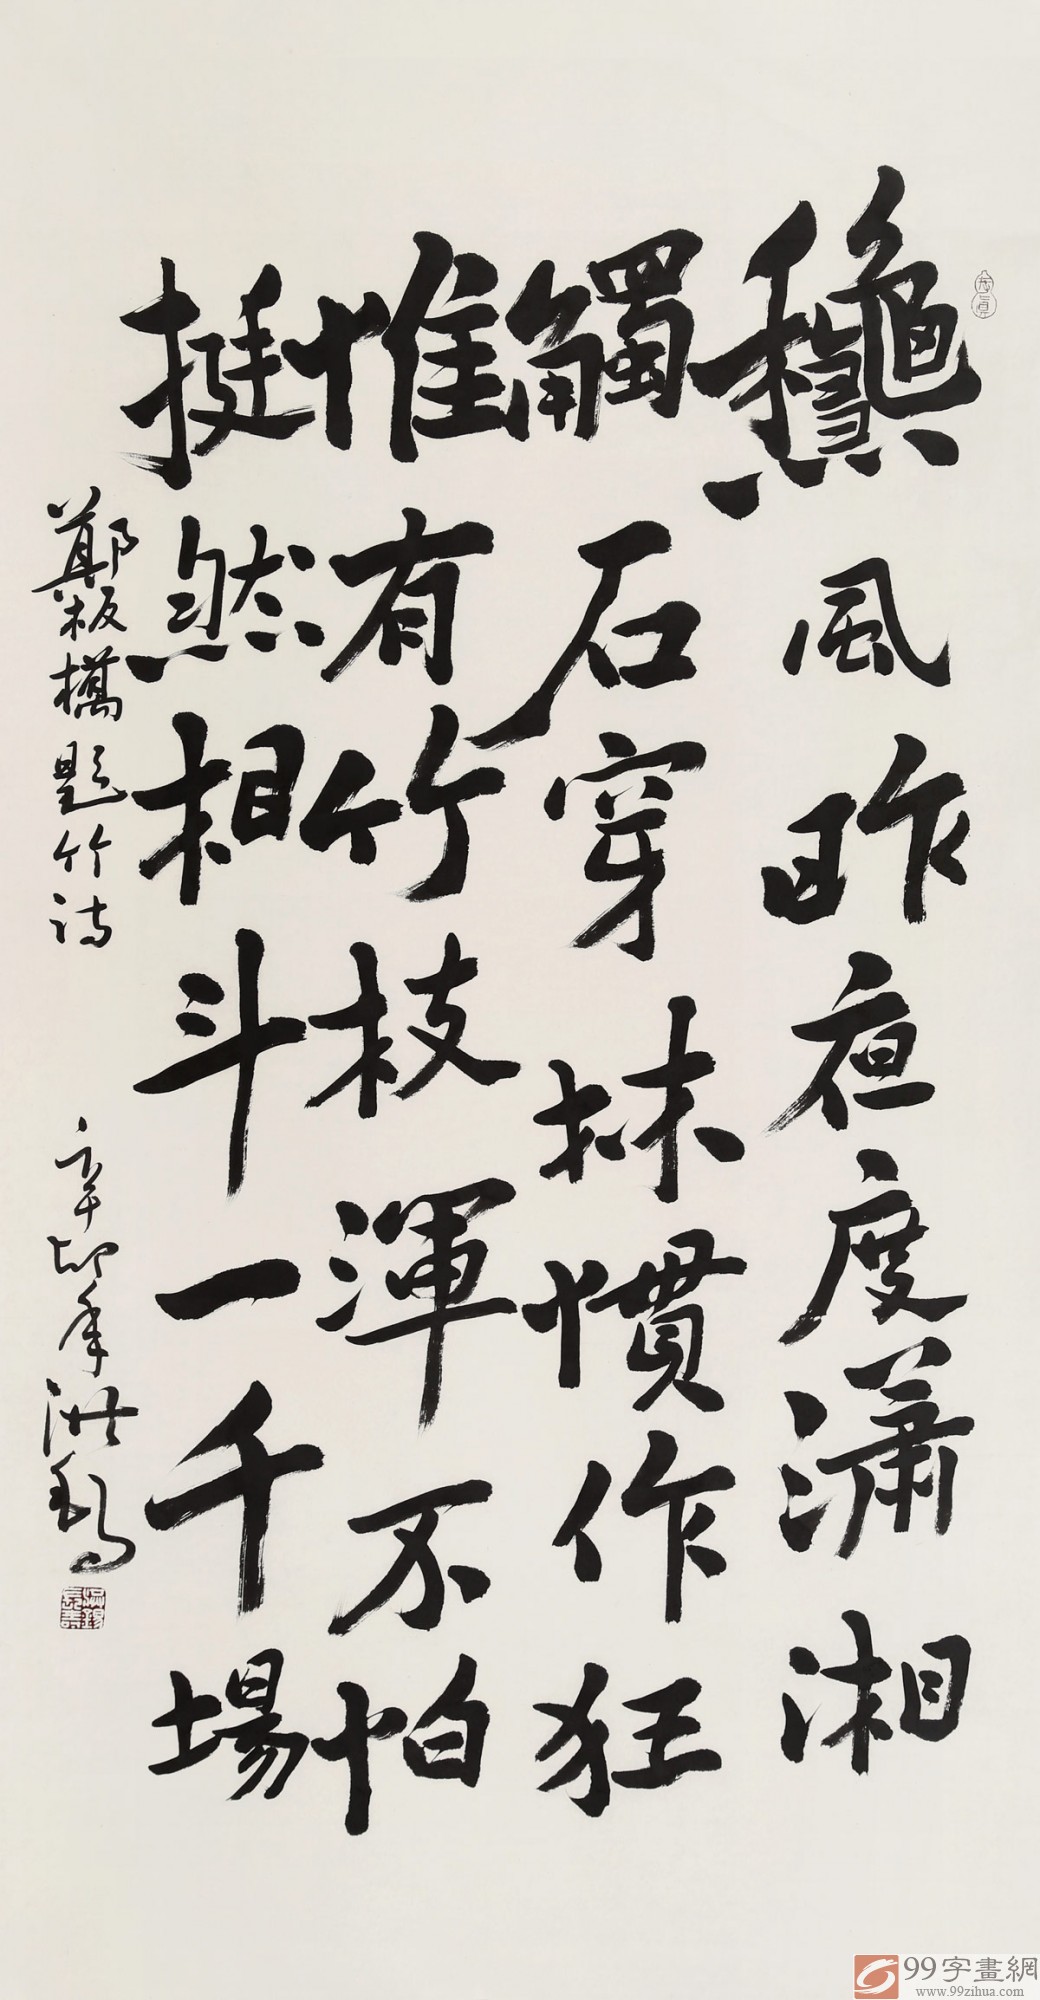 龝風昨夜度瀟湘
觸石穿林慣作狂
惟有竹枝渾不怕
挺然相斗一千場
鄭板橋題竹诗 辛卯年洪
99字畫網
www.99zihua.com